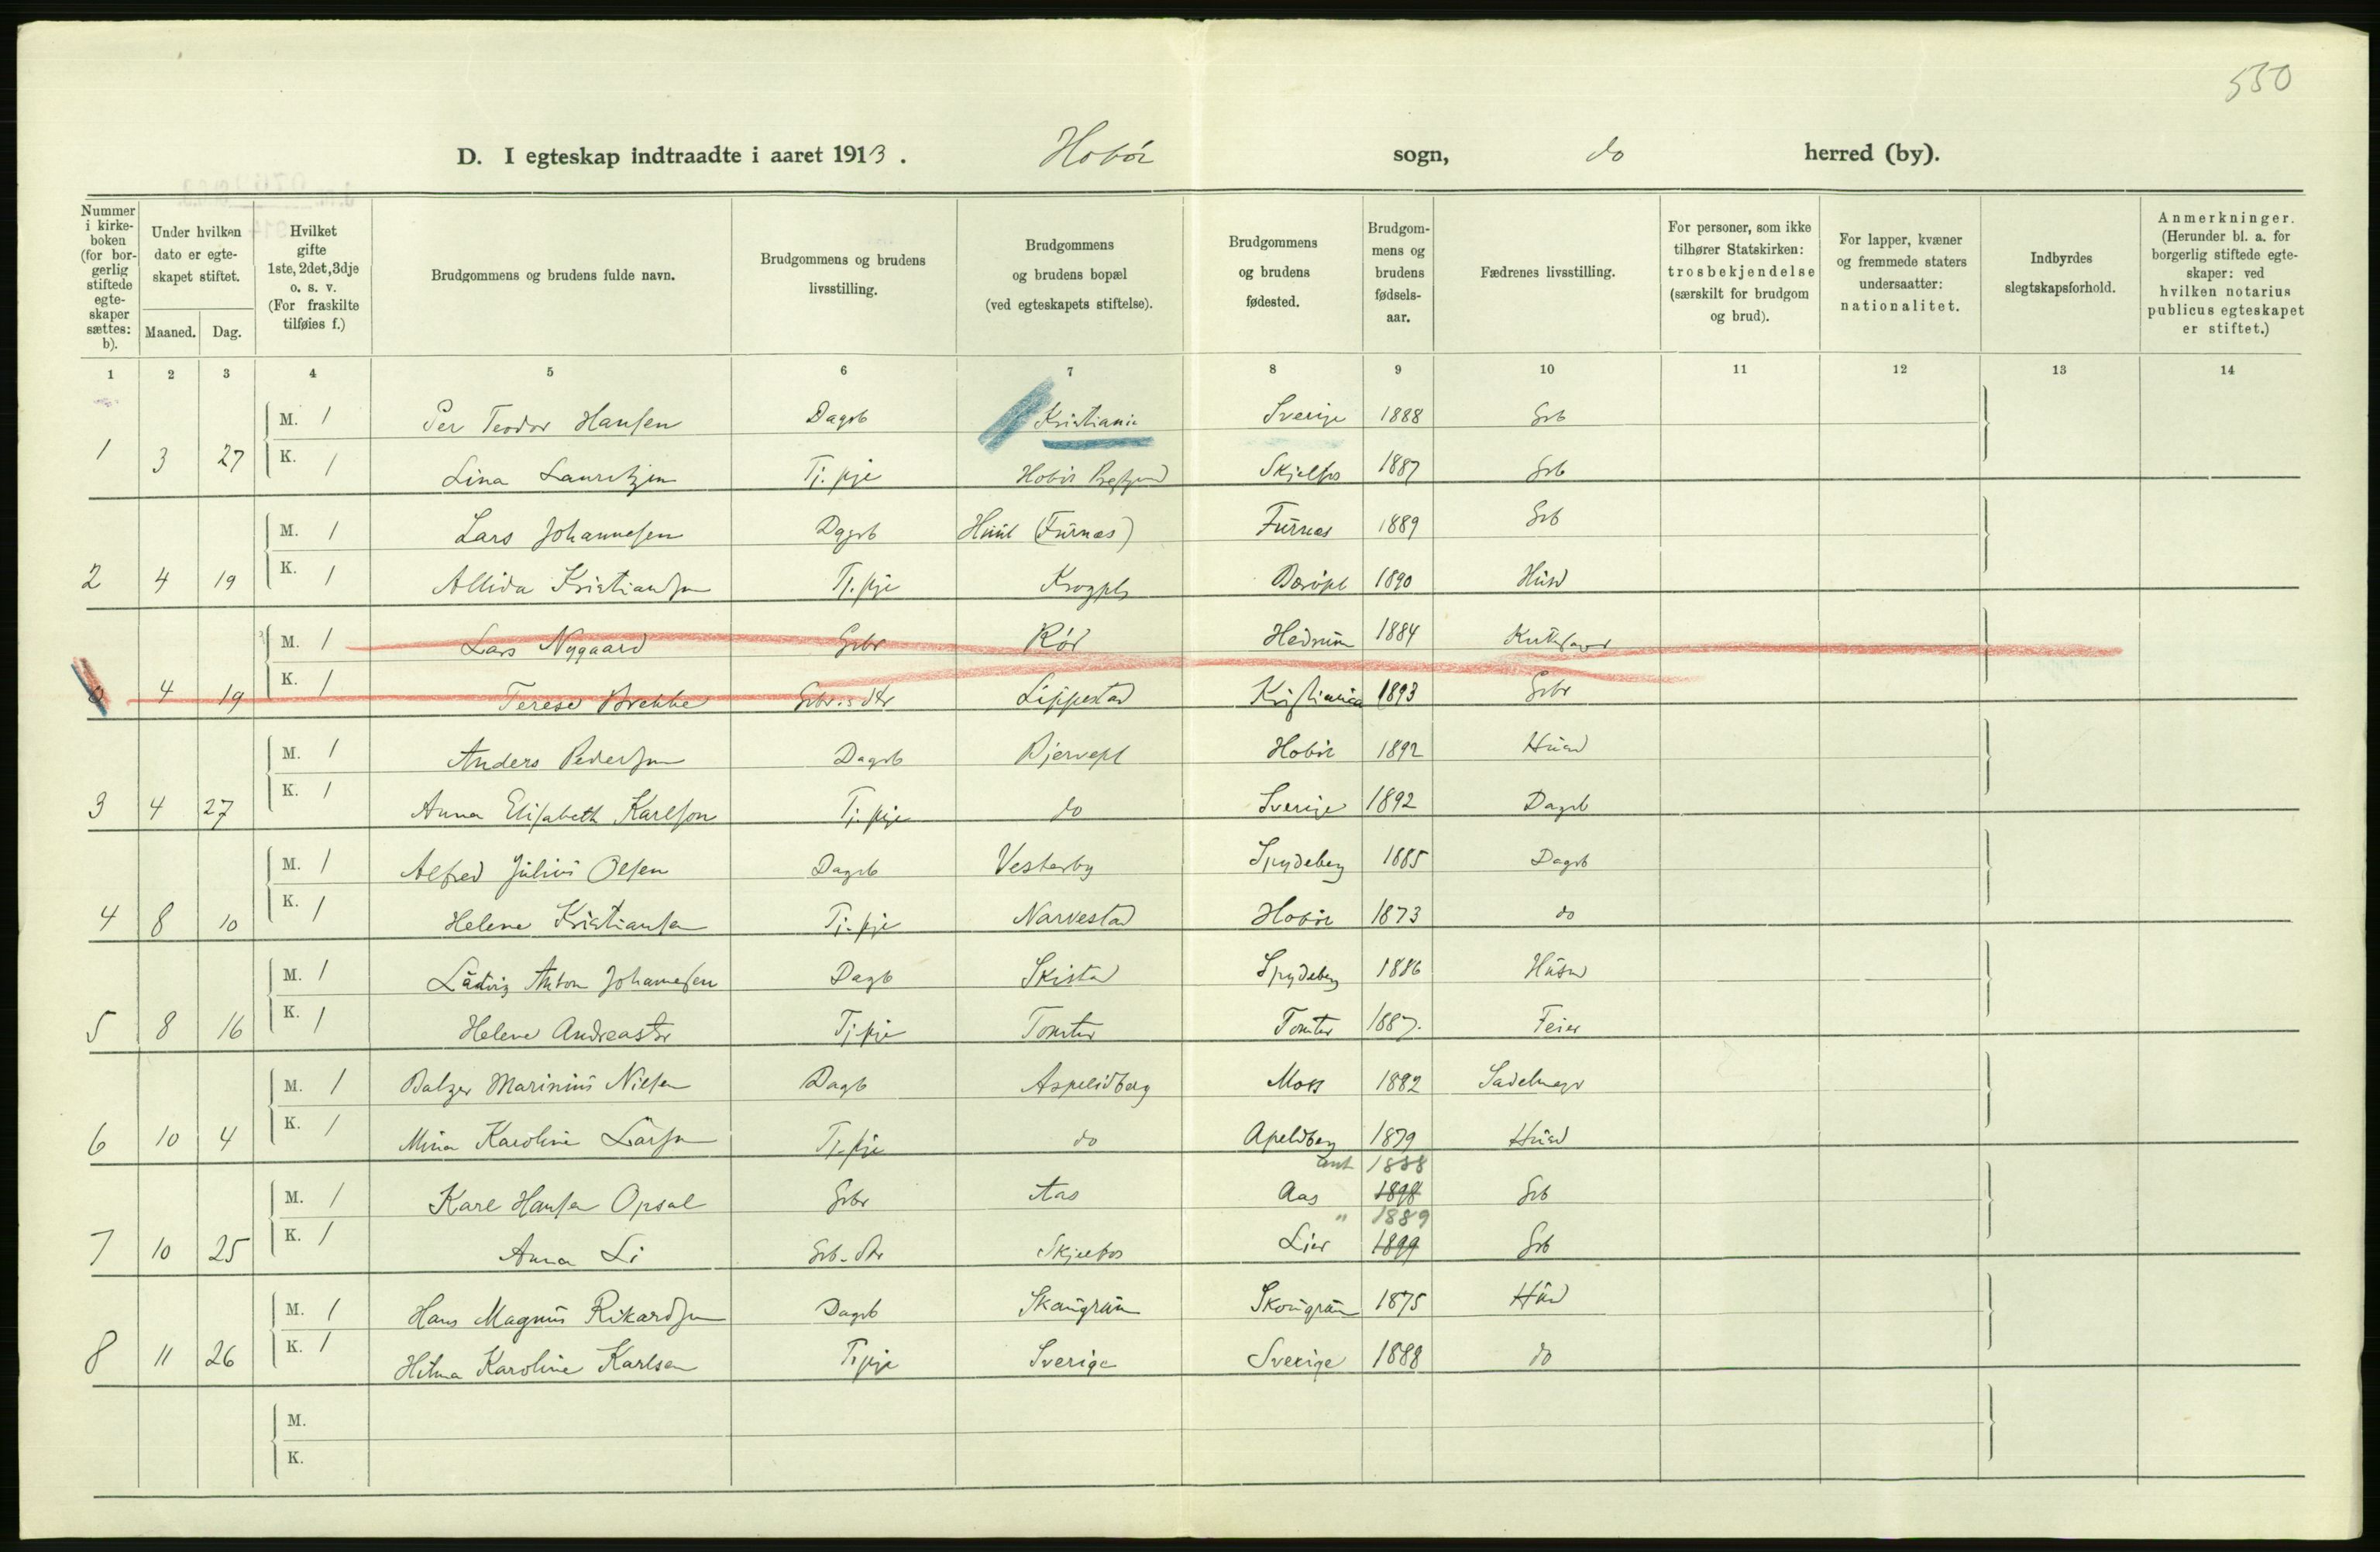 550
D. I egteskap indtraadte i aaret 1913. Hobøl sogn, do herred (by).
Nummer i kirkeboken (for borgerlig stiftede egteskaper sættes: b).
Under hvilken dato er egteskapet stiftet.
Maaned. Dag.
Hvilket gifte 1ste, 2det, 3dje o. s. v. (For fraskilte tilføies f.)
Brudgommens og brudens fulde navn.
Brudgommens og brudens livsstilling.
Brudgommens og brudens bopæl (ved egteskapets stiftelse).
Brudgommens og brudens fødested.
Brudgommens og brudens fødselsaar.
Fædrenes livsstilling.
For personer, som ikke tilhører Statskirken: trosbekjendelse (særskilt for brudgom og brud).
For lapper, kvæner og fremmede staters undersaatter: nationalitet.
Indbyrdes slegtskapsforhold.
Anmerkninger. (Herunder bl. a. for borgerlig stiftede egteskaper: ved hvilken notarius publicus egteskapet er stiftet.)
1 2 3 4 5 6 7 8 9 10 11 12 13 14
M. 1 Per Teodor Hansen Dagb Kristiania Sverige 1888 Grb
1 3 27 K. 1 Lina Lauritzen Tj.pige Hobøl 1887 Grb
M. 1 Lars Johannesen Dagb (Furnæs) Furnæs 1889 Grb
2 4 19 K. 1 Allida Kristiansen Tj.pige 1890 Husm
M. 1 Lars Nygaard Grbr Rød Hedrum 1884
4 19 K. 1 Terese Brekke Grbr.sdtr Lippestad Kristiania 1893 Grbr
M. 1 Anders Pedersen Dagb Hobøl 1892 Husm
3 4 27 K. 1 Anna Elisabeth Karlson Tj.pige do Sverige 1892 Dagb
M. 1 Alfred Julius Olsen Dagb Vesterby Spydeberg 1885 Dagb
4 8 10 K. 1 Helene Kristiansen Tj.pige Narvestad Hobøl 1873 do
M. 1 Ludvig Anton Johannesen Dagb Skistad Spydeberg 1886 Husm
5 8 16 K. 1 Helene Andreasdtr Tj.pige Tomter Tomter 1887. Feier
M. 1 Balzer Marinius Nilsen Dagb Moss 1882
6 10 4 K. 1 Mina Karoline Larsen Tj.pige do Apeldberg 1879 Husm
ant 1888
M. 1 Karl Hansen Opsal Grbr Aas Aas 1898 Grb
" 1889
7 10 25 K. 1 Anna Li Grb.dtr Lier 1899 Grb
M. 1 Hans Magnus Rikardsen Dagb Skaugrun 1875 Husm
8 11 26 K. 1 Hilma Karoline Karlsen Tjpige Sverige Sverige 1888 do
M.
K.